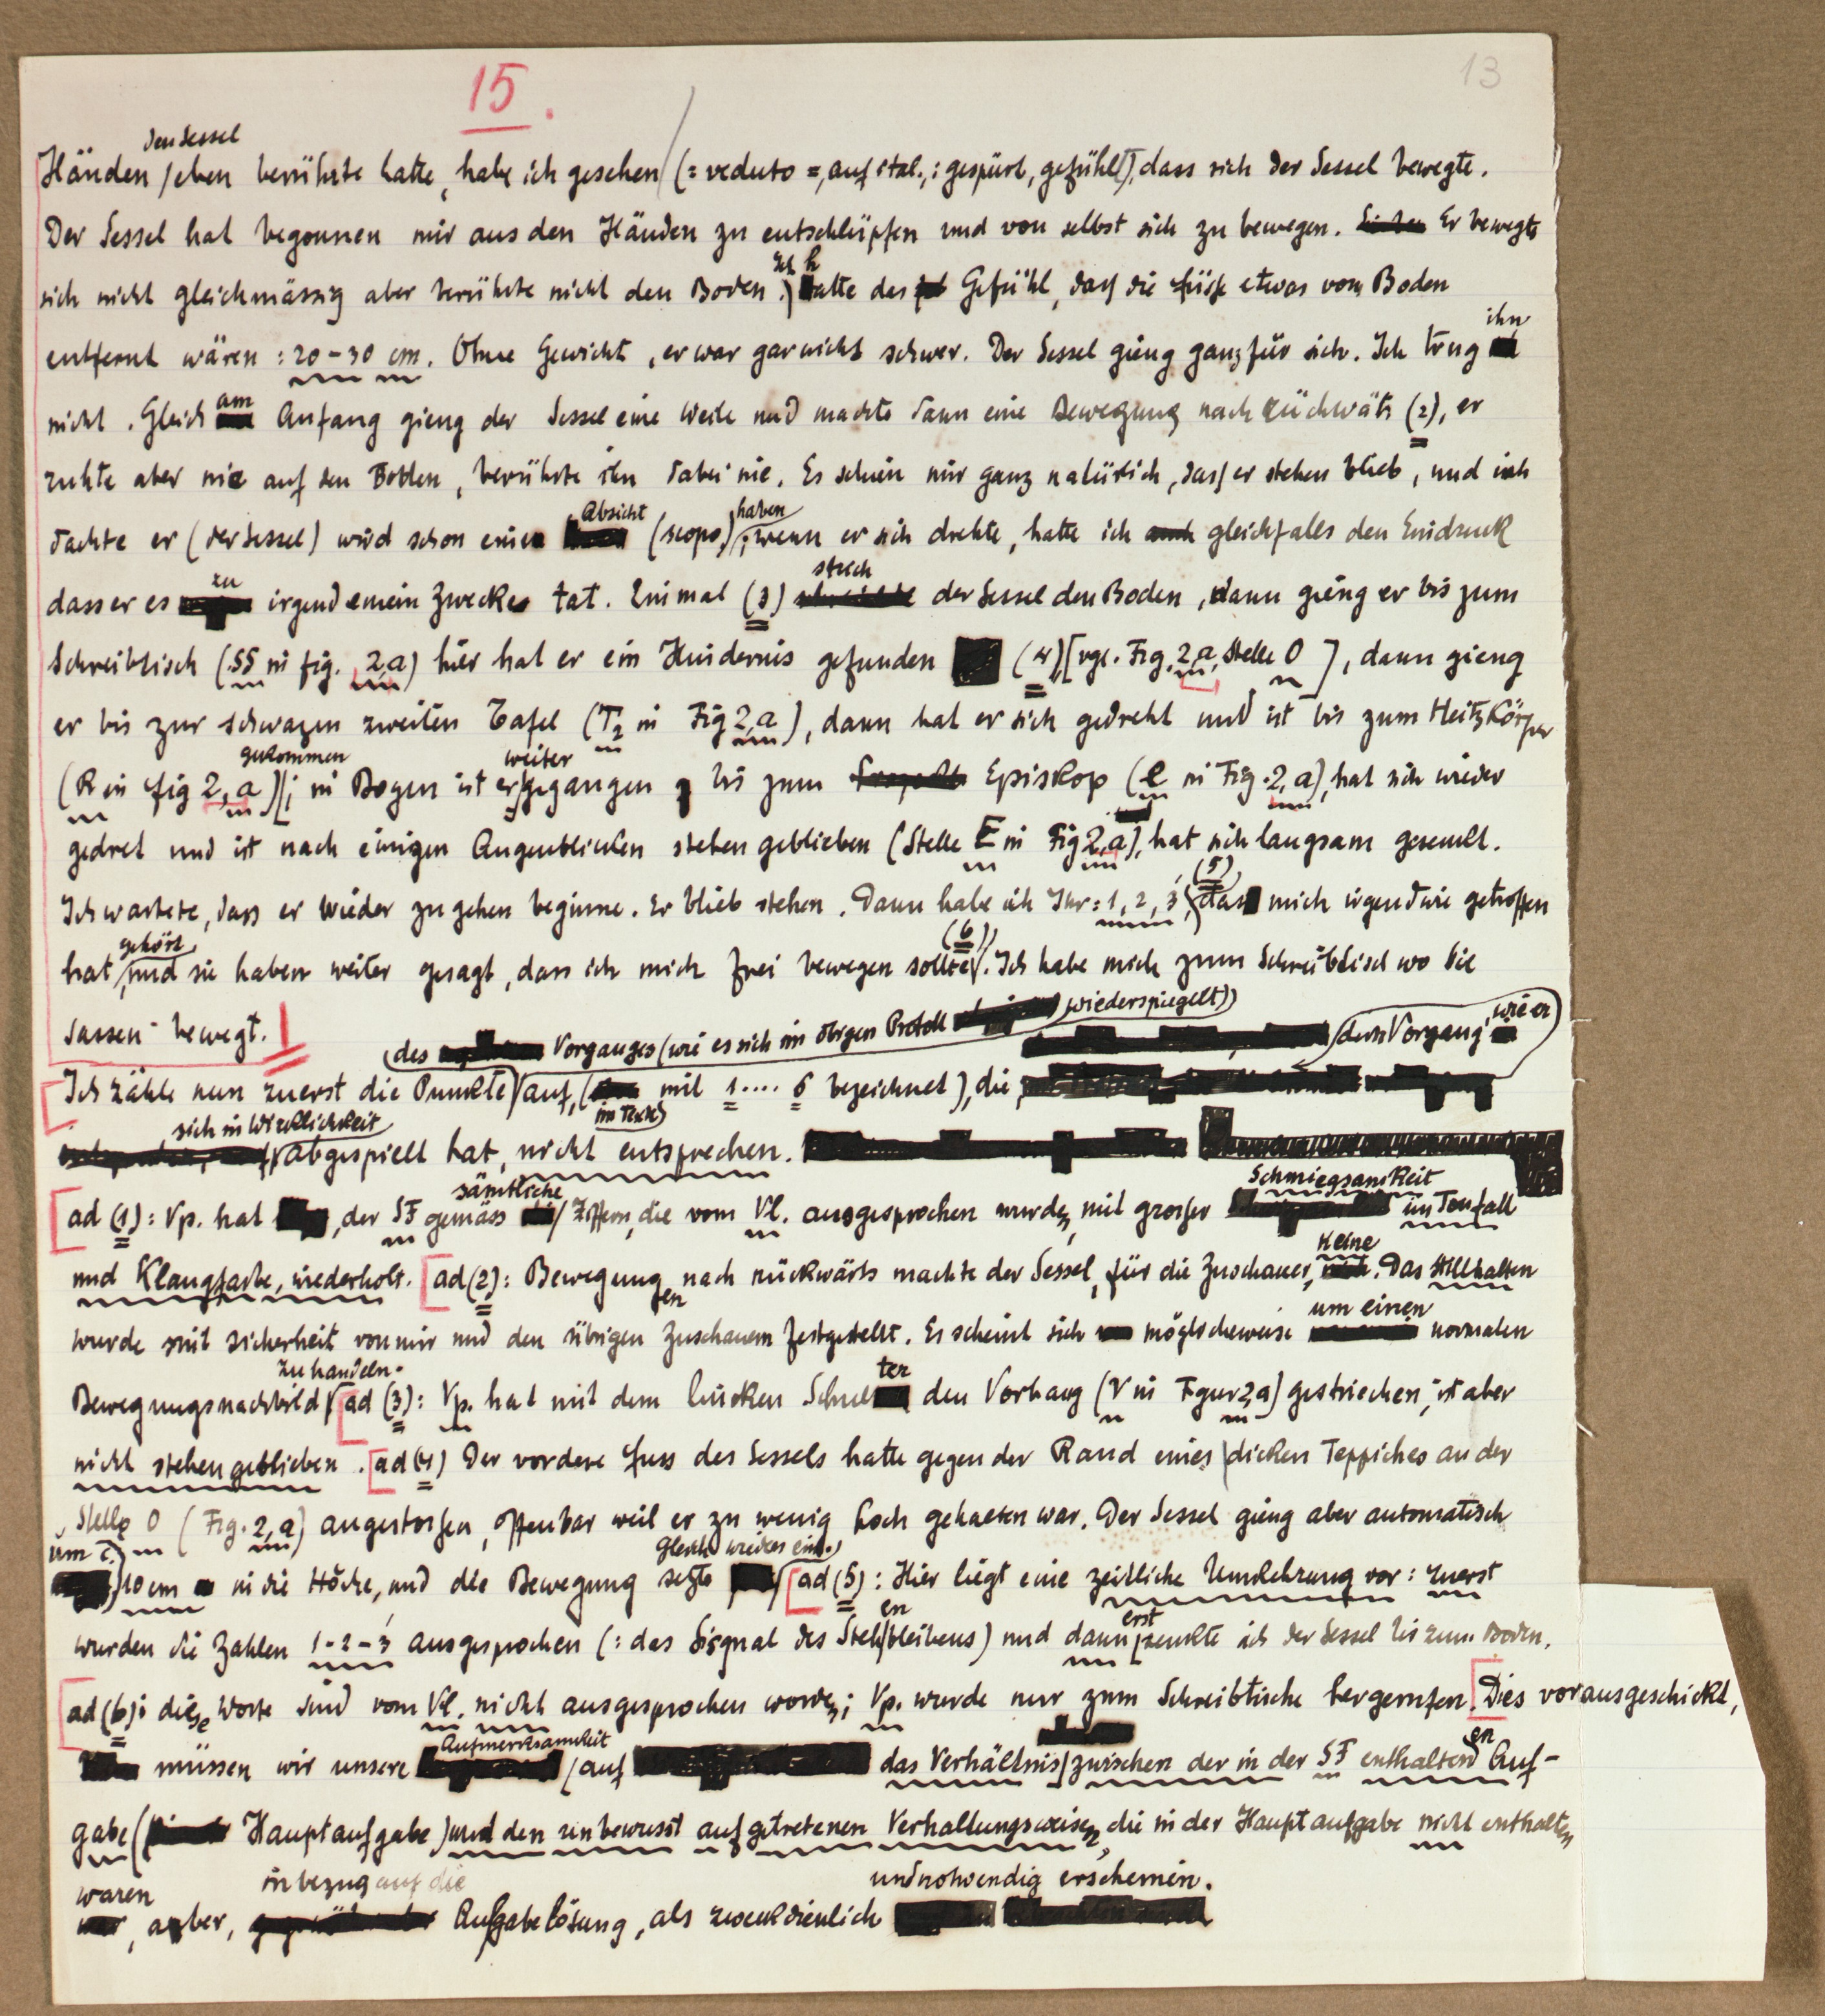 15.
13
den Sessel
Händen / eben berührte hatte, habe ich gesehen (= veduto =, auf ital.,: gespürt, gefühlt), dass sich der Sessel bewegte.
Der Sessel hat begonnen mir aus den Händen zu entschlüpfen und von selbst sich zu bewegen. Er bewegte
sich nicht gleichmässig aber berührte nicht den Boden. Ich hatte das Gefühl, dass die Füsse etwas vom Boden
entfernt wären: 20-30 cm. Ohne Gewicht, er war gar nicht schwer. Der Sessel gieng ganz für sich. Ich trug ihn
nicht. Gleich am Anfang gieng der Sessel eine Weile und machte dann eine Bewegung nach rückwäts (2), er
ruhte aber nie auf den Boden, berührte ihn dabei nie. Es schien mir ganz natürlich, dass er stehen blieb, und ich
dachte er (der Sessel) wird schon eine Absicht (scopo) haben; wenn er sich drehte, hatte ich gleichfalls den Eindruck
dass er es zu irgend einem Zwecke tat. Einmal (3) strich der Sessel den Boden, dann gieng er bis zum
Schreibtisch (SS in fig. 2,a) hier hat er ein Hindernis gefunden (4), [vgl. Fig. 2,a, Stelle O], dann gieng
er bis zur schwazen zweiten Tafel (T2 in Fig 2,a), dann hat er sich gedreht und ist bis zum Heitzkörper
(R in fig 2,a) gekommen; in Bogen ist er weiter gegangen bis zum Episkop (e in Fig. 2,a), hat sich wieder
gedret und ist nach einigen Augenblicken stehen geblieben (Stelle E in Fig 2,a), hat sich langsam gesenkt.
Ich wartete, dass er wieder zu gehen beginne. Er blieb stehen. Dann habe ich Ihr: 1, 2, 3, (5) das mich irgendwie getroffen
hat, gehört und sie haben weiter gesagt, dass ich mich frei bewegen sollte (6). Ich habe mich zum Schreibtisch wo Sie
sassen bewegt.
Ich zähle nun zuerst die Punkte des Vorganges (wie es sich im obigen Protoll wiederspiegelt) auf, (im Text mit 1.... 6 bezeichnet), die dem Vorgang, wie er
sich in Wirklichkeit abgespielt hat, nicht entsprechen.
ad (1): Vp. hat, der SF gemäss sämtliche Ziffern, die vom Vl. ausgesprochen wurden, mit grosser Schmiegsamkeit im Tonfall
und Klangfarbe, wiederholt. ad (2): Bewegungen nach rückwärts machte der Sessel, für die Zuschauer, keine. Das Stillhalten
wurde mit Sicherheit von mir und den übrigen Zuschauern festgestellt. Es scheint sich möglicheweise um einen normalen
Bewegungsnachbild zu handeln. ad (3): Vp. hat mit dem linken Schulter den Vorhang (V in Figur 2,a) gestriechen, ist aber
nicht stehen geblieben. ad (4) Der vordere Fuss des Sessels hatte gegen der Rand eines dicken Teppiches an der
Stelle O (Fig. 2,a) angestossen, offenbar weil er zu wenig hoch gehalten war. Der Sessel gieng aber automatisch
um c. 10 cm in die Höche, und die Bewegung setzte gleich wieder ein. ad (5): Hier liegt eine zeitliche Umkehrung vor: zuerst
wurden die Zahlen 1-2-3 ausgesprochen (: das Signal des Stehenbleibens) und dann erst senkte ich der Sessel bis zum Boden.
ad (6): diese Worte sind vom Vl. nicht ausgesprochen worden; Vp. wurde nur zum Schreibtische hergerufen. Dies vorausgeschickt,
müssen wir unsere Aufmerksamkeit auf das Verhältnis zwischen der in der SF enthaltenen Auf-
gabe (Hauptaufgabe) und den unbewusst aufgetretenen Verhaltungsweisen, die in der Hauptaufgabe nicht enthalten
waren, aber, in bezug auf die Aufgabelösung, als zweckdienlich und notwendig erscheinen.